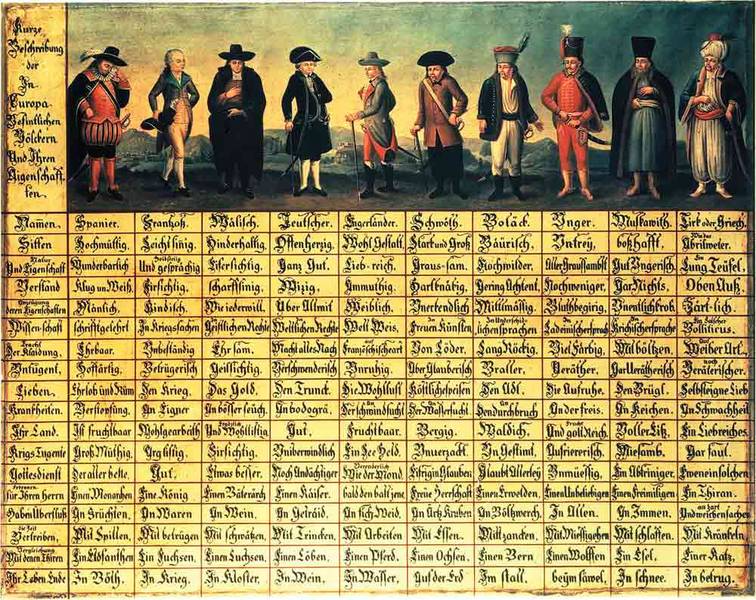 Kurze
Beschreibung
der
In
Europa
Befintlichen
Völckern
Und Ihren
Aigenschaff
ten.
Namen. Spanier. Frantzoß. Wälisch. Teutscher. Engerländer. Schwöth. Boläck. Unger. Muskawith. Tirk oder Griech.
Sitten Hochmüttig. Leichtsinig. Hinderhaltig. Offenherzig. Wohl Gestalt. Stark und Groß Bäurisch. Untrey. boßhafft. Abrilweter.
Natur Und Eigenschaft Wunderbarlich Und gesprächig Eifersichtig. Ganz Gut. Lieb-reich. Graus-sam. Nochwilder. Aller Graussambst. Gut Ungerisch. Lung Teüfel.
Verstand Klug un Weiß. Firsichtig. scharffsinig. Wizig. Ammuthig. Hartknätig. Gering Achtent. Nochweniger. Gar Nichts. Oben Auß.
deren Eigenschaften Mänlich. Kindisch. Wie iederwill. Über Allmit Weiblich. Unerkendlich Mittlmäsig. Bluthbegirig. Unentlichkrob Zärt-lich.
Wissenschaft schrifftgelehrt In Kriegssachen Geistlichen Rechte Weltlichen Rechte Welt Weis. Freuen Künsten lichensprachen Ladeinischersprach Krichischersprache Bolliticus.
Der Klaidung. Ehrbaar. Unbeständig Ehrsam. Macht alles Nach Französchischeart Von Löder. Lang Röckig. Viel Färbig. Mit böltzen. Weiber Art.
Untugent. Hoffärtig. Betrügerisch Geillsichtig. Verschwenderisch Unruhig. Über Glauberisch Braller. Veräther. Gar Verätherisch Verätherischer.
Lieben. Ehrlob und Rüm Den Krieg. Das Gold. Den Trunck. Die Wohllust Köstlichespeisen Den Adl. Die Aufruhe. Den Brügl. Selbsteigne Lieb
Kranckheiten. Verstopfung. An Eigner An bösser seüch. An bodogrä. Der schwindsucht Der Wassersucht Den durchbruch An der freis. An Keichen. An Schwachheit
Ihr Land. Ist fruchtbaar Wohlgearbeith Und Wohllistig Gut. Fruchtbaar. Bergig. Waldich. Und golt Reich. Voller Eiß. Ein Liebreiches
Krigs Tugente Groß Müthig. Arglistig. Firsichtig. Uniberwindlich Ein See Held. Unverzackt. Un Gestimt. Aufrierisch. Miesamb. Gar faul.
Gottesdienst Der aller beste. Gut. Etwas besser. Noch Andächtiger Wie der Mond. Eifrig in Glauben Glaubt Allerley Unmüessig. Ein Abtriniger. Eweneinsolchen
für Ihren herrn Einen Monarchen Eine König Einen Bäterärch Einen Kaiser. bald den bald jene Freüe Herrschaft Einen Erwelden. Einen Unbeliebigen Einen Freimilligen Ein Thiran.
Haben Überfluß An Früchten. An Waren An Wein. An Getraid. An fich Weid. An Ärtz Kruben An Böltzwerch. In Allen. An Immen. Und weichen sachen
die Zeit Vertreiben. Mit Spillen. Mit betrügen Mit schwätzen. Mit Trincken. Mit Arbeiten Mit Essen. Mit zancken. Mit Miessigehen Mit schlaffen. Mit Kränkeln
Vergleichung Mit denen Thiren Ein Elofanthen Ein Fuchsen. Einen Luchsen. Einen Löben. Einen Pferd. Einen Ochsen. Einen Bern Einen Wolffen Ein Esel. Einer Katz.
Ihr Leben Ende In Böth. In Krieg. In Kloster. In Wein. In Wasser. Auf der Erd Im stall. beym säwel. In schnee. In betrug.